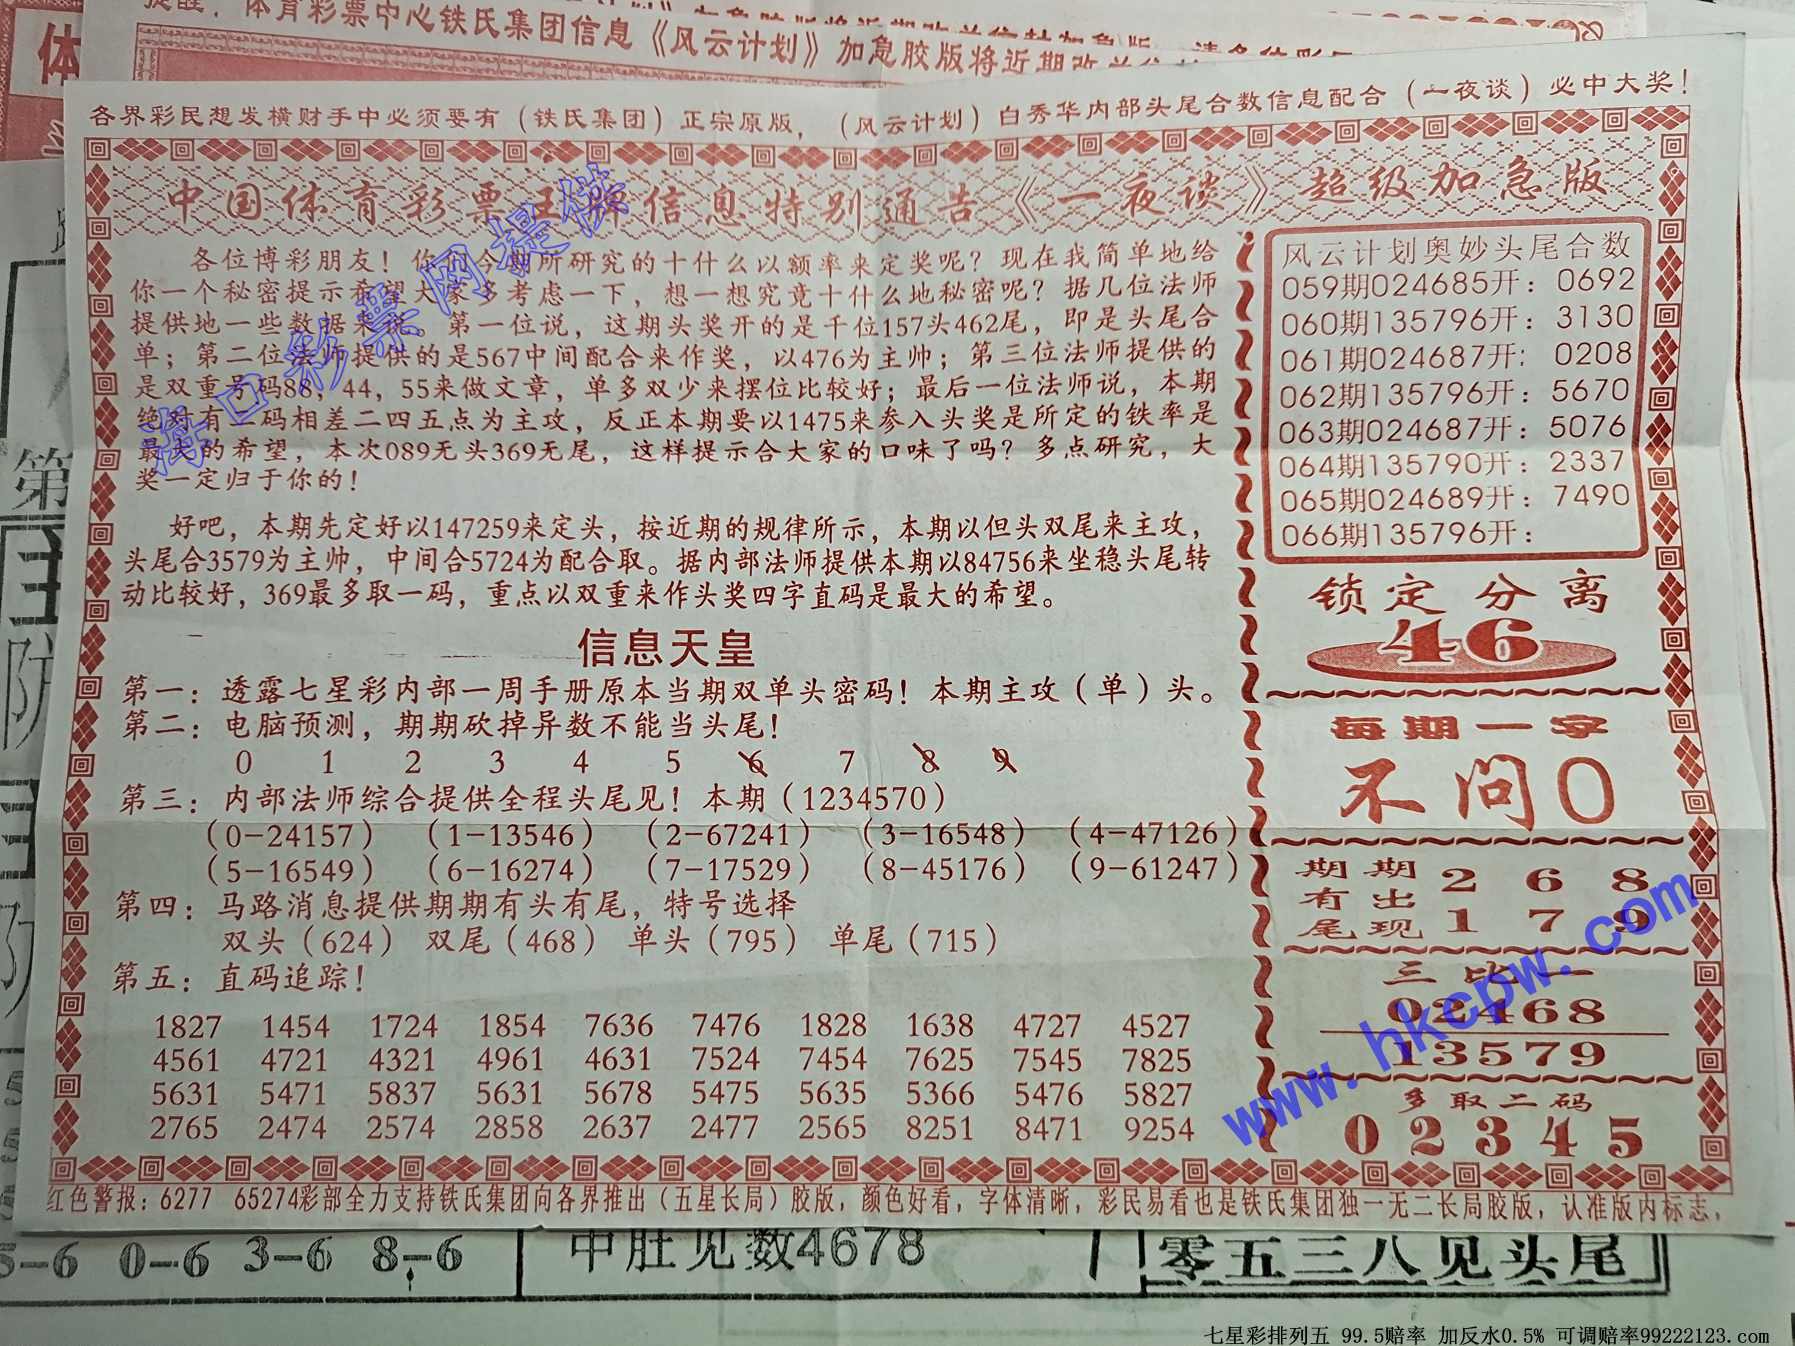 提醒：体育彩票中心铁氏集团信息《风云计划》加急胶版将近期改单
各界彩民想发横财手中必须要有（铁氏集团）正宗原版，（风云计划）白秀华内部头尾合数信息配合（一夜谈）必中大奖！
中国体育彩票王牌信息特别通告《一夜谈》超级加急版
各位博彩朋友！你们今期所研究的十什么以额率来定奖呢？现在我简单地给
你一个秘密提示希望大家多考虑一下，想一想究竟十什么地秘密呢？据几位法师
提供地一些数据来说。第一位说，这期头奖开的是千位157头462尾，即是头尾合
单；第二位法师提供的是567中间配合来作奖，以476为主帅；第三位法师提供的
是双重号码88，44，55来做文章，单多双少来摆位比较好；最后一位法师说，本期
绝对有二码相差二四五点为主攻，反正本期要以1475来参入头奖是所定的铁率是
最大的希望，本次089无头369无尾，这样提示合大家的口味了吗？多点研究，大
奖一定归于你的！
好吧，本期先定好以147259来定头，按近期的规律所示，本期以但头双尾来主攻，
头尾合3579为主帅，中间合5724为配合取。据内部法师提供本期以84756来坐稳头尾转
动比较好，369最多取一码，重点以双重来作头奖四字直码是最大的希望。
信息天皇
第一：透露七星彩内部一周手册原本当期双单头密码！本期主攻（单）头。
第二：电脑预测，期期砍掉异数不能当头尾！
0 1 2 3 4 5 6 7 8 9
第三：内部法师综合提供全程头尾见！本期（1234570）
（0-24157）（1-13546）（2-67241）（3-16548）（4-47126）
（5-16549）（6-16274）（7-17529）（8-45176）（9-61247）
第四：马路消息提供期期有头有尾，特号选择
双头（624） 双尾（468） 单头（795） 单尾（715）
第五：直码追踪！
1827 1454 1724 1854 7636 7476 1828 1638 4727 4527
4561 4721 4321 4961 4631 7524 7454 7625 7545 7825
5631 5471 5837 5631 5678 5475 5635 5366 5476 5827
2765 2474 2574 2858 2637 2477 2565 8251 8471 9254
风云计划奥妙头尾合数
059期024685开：0692
060期135796开：3130
061期024687开：0208
062期135796开：5670
063期024687开：5076
064期135790开：2337
065期024689开：7490
066期135796开：
锁定分离
46
每期一字
不问0
期期 2 6 8
有出
尾现 1 7 9
三比一
02468
13579
多取二码
0 2 3 4 5
红色警报：6277 65274彩部全力支持铁氏集团向各界推出（五星长局）胶版，颜色好看，字体清晰，彩民易看也是铁氏集团独一无二长局胶版，认准版内标志，
海口彩票网提供
www.hkcpw.com
0-6 3-6 8-6
中肚见数4678
零五三八见头尾
七星彩排列五 99.5赔率 加反水0.5% 可调赔率99222123.com